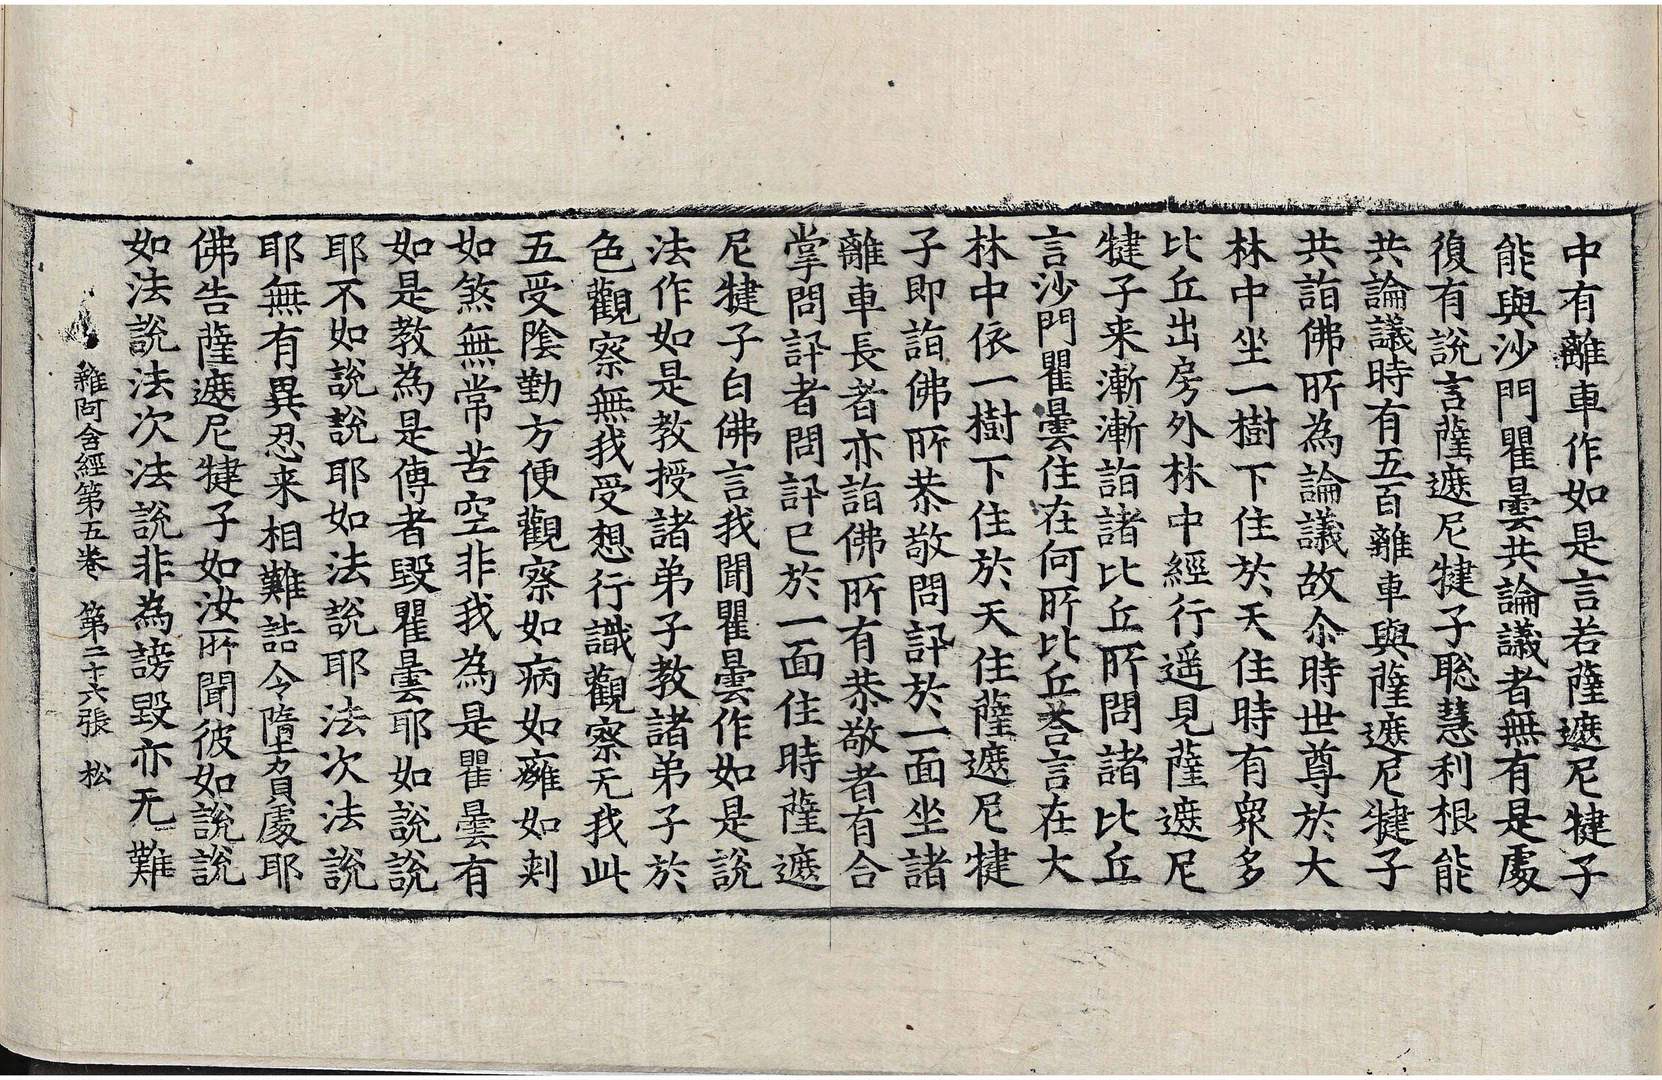 中有離車作如是言若薩遮尼犍子
能與沙門瞿曇共論議者無有是處
復有說言薩遮尼犍子聡慧利根能
共論議時有五百離車與薩遮尼犍子
共詣佛所為論議故尒時世尊於大
林中坐一樹下住於天住時有衆多
比丘出房外林中經行遥見薩遮尼
犍子来漸漸詣諸比丘所問諸比丘
言沙門瞿曇住在何所比丘荅言在大
林中依一樹下住於天住薩遮尼犍
子即詣佛所恭敬問訊於一面坐諸
離車長者亦詣佛所有恭敬者有合
掌問訊者問訊已於一面住時薩遮
尼犍子白佛言我聞瞿曇作如是說
法作如是教授諸弟子教諸弟子於
色觀察無我受想行識觀察无我此
五受陰勤方便觀察如病如癰如刾
如煞無常苦空非我為是瞿曇有
如是教為是傳者毀瞿曇耶如說說
耶不如說說耶如法說耶法次法說
耶無有異忍来相難詰令墮負處耶
佛告薩遮尼犍子如汝所聞彼如說說
如法說法次法說非為謗毀亦无難
雜阿含經第五卷 第二十六張 松